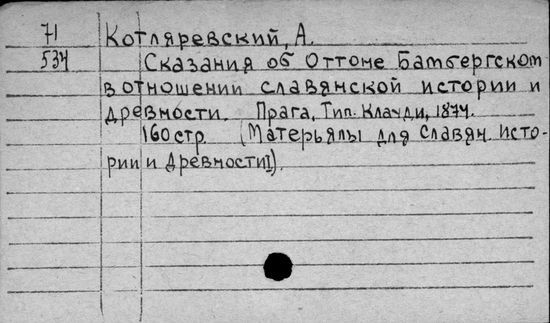 71 Котляревский, А.
534 Сказания об Оттоне Бамбергском
в отношении славянской истории и
древности. Прага, Тип. Клауди, 1874.
160 стр (Матерьялы для Славян. Исто-
рии и Древности I).